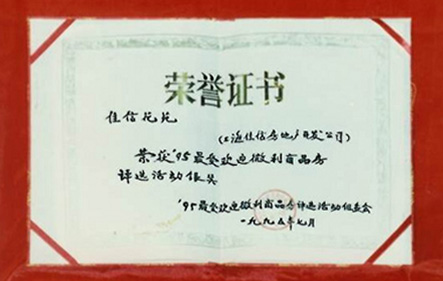 荣誉证书
佳信花苑
（上海佳信房地产开发公司）
荣获'95最受欢迎微利商品房
评选活动银奖
'95最受欢迎微利商品房评选活动组委会
一九九五年七月